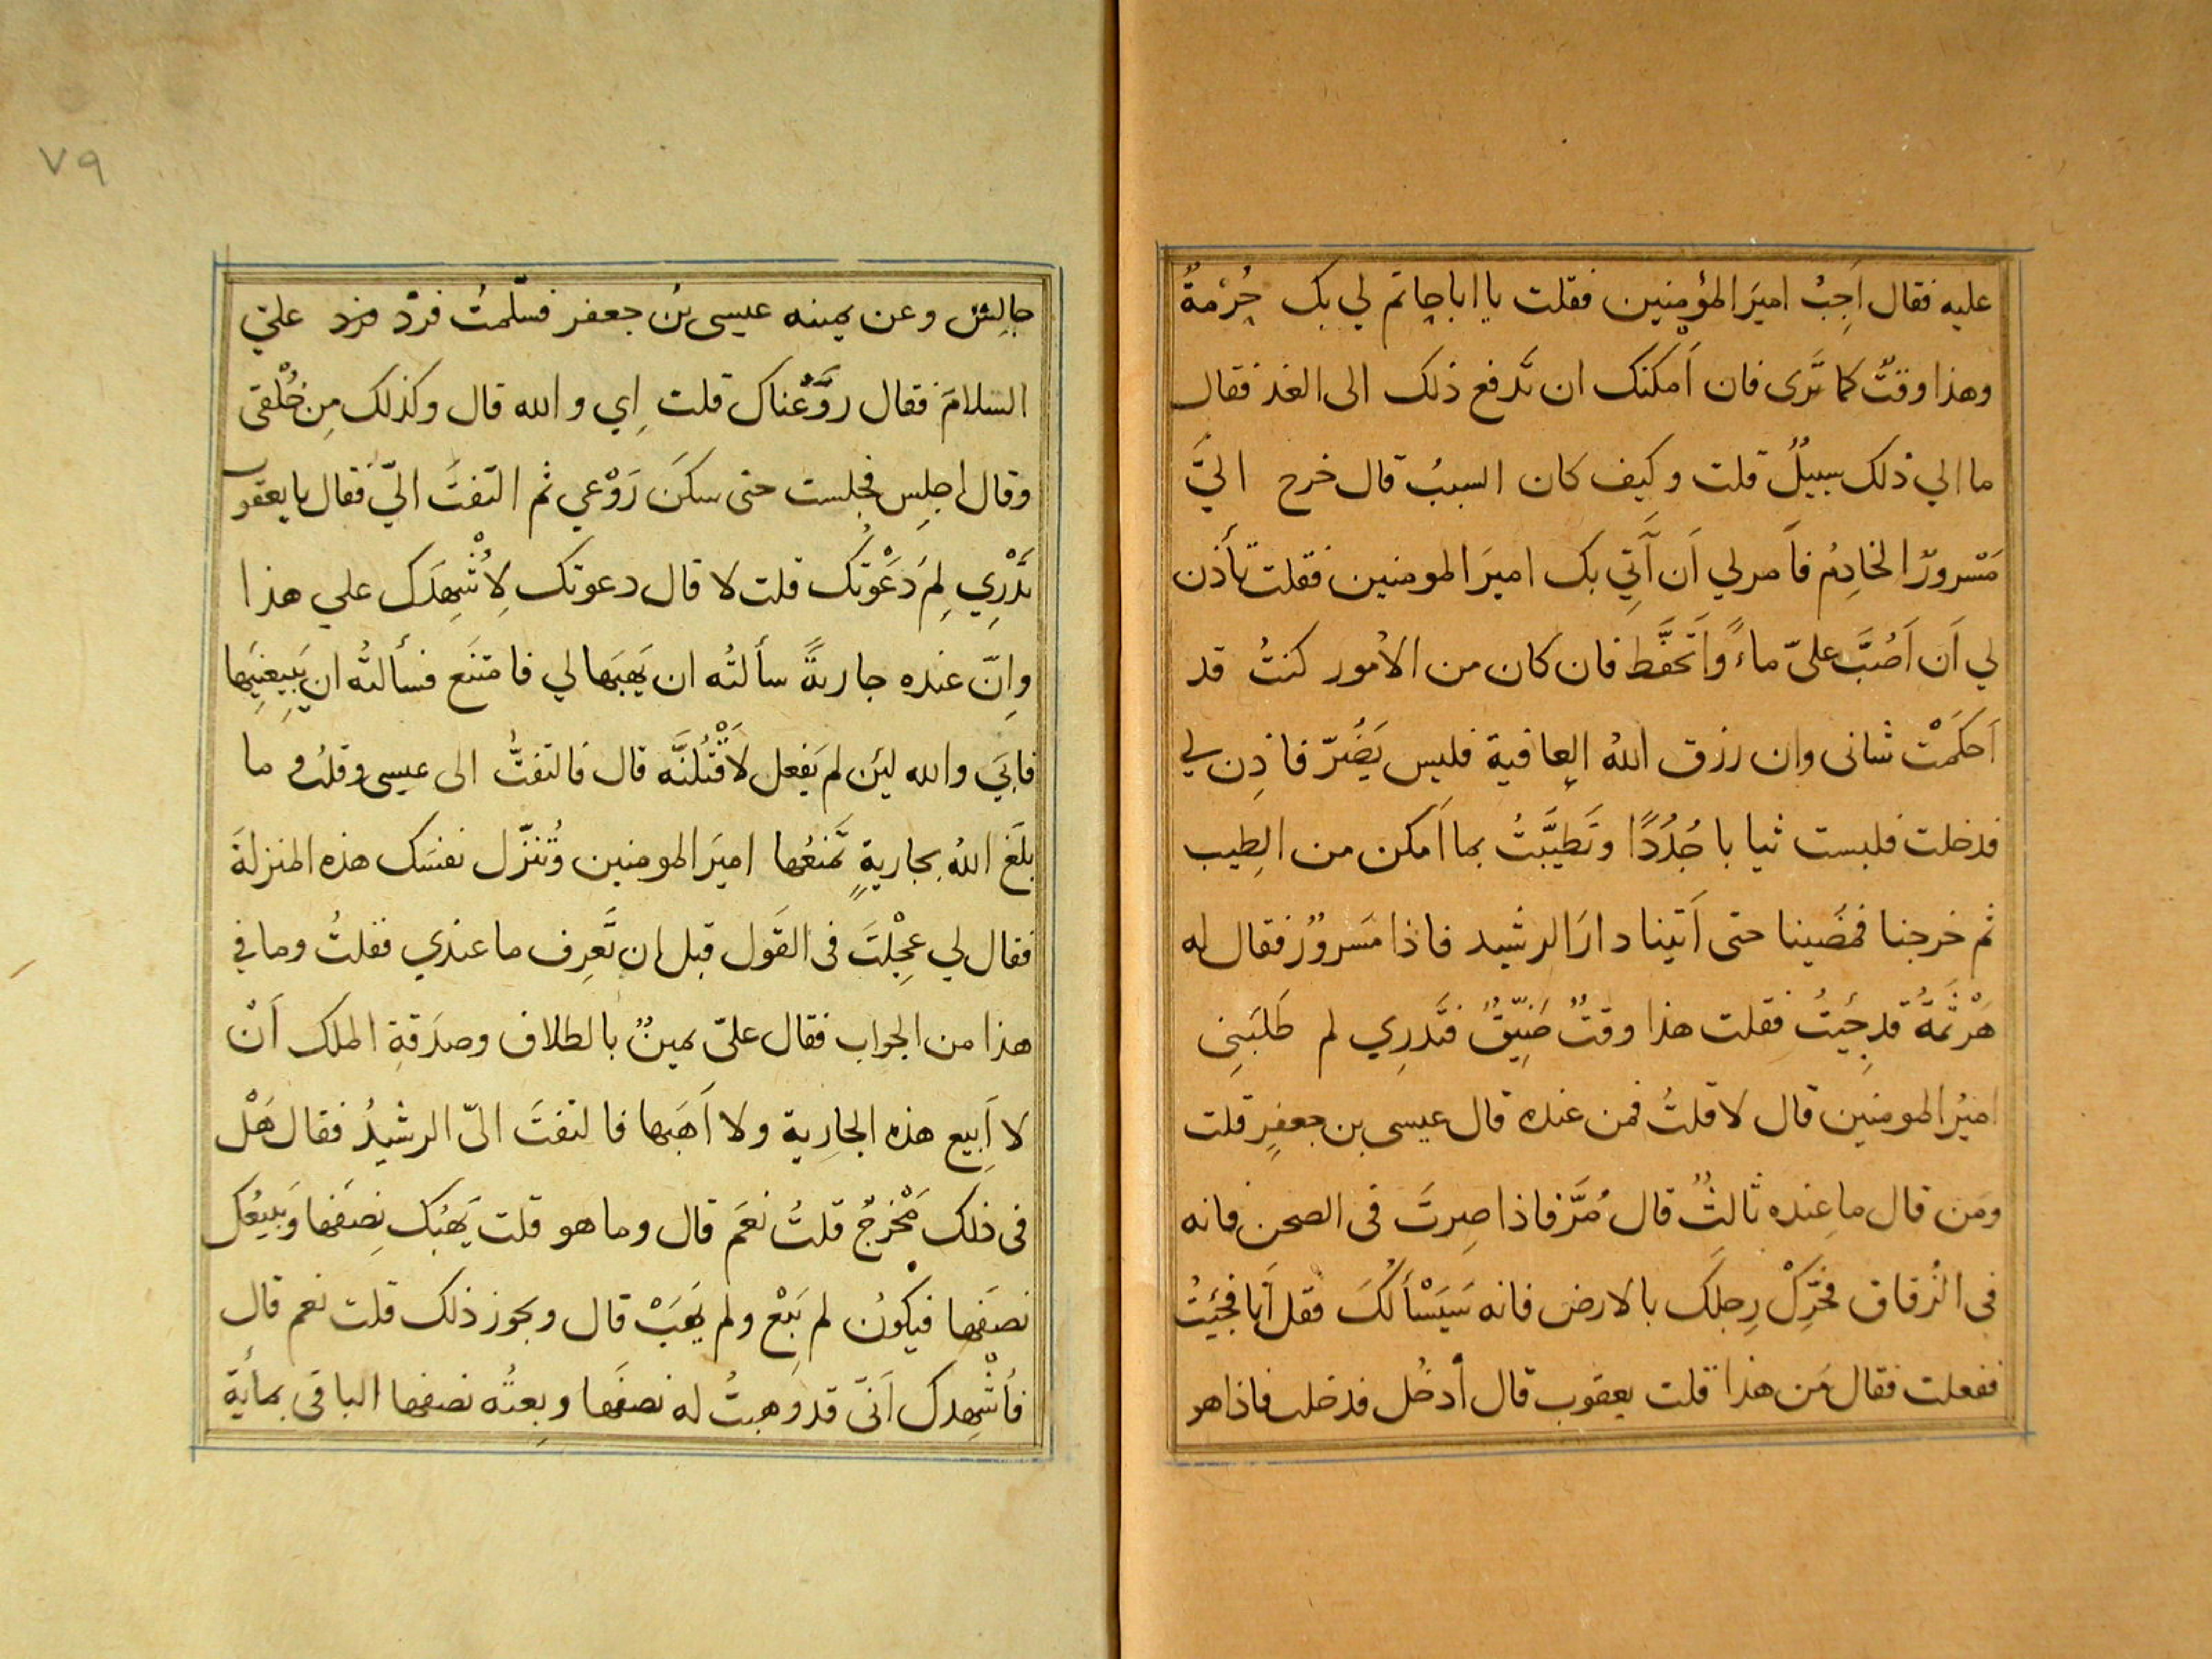 عليه فقال اَجِبْ اميرَ المؤمنين فقلت يا ابا حاتم لي بك حُرْمةٌ
وهذا وقتٌ كما تَرى فان اَمكنك ان تَدفع ذلك الى الغد فقال
ما الي ذلك سبيلٌ قلت وكيف كان السببُ قال خرج اليَّ
مَسْرورٌ الخادِمُ فاَمرلي اَن اَتِي بك اميرَ المومنين فقلت تأذن
لي اَن اَصُبَّ عليّ ماءً واَتحفَّط فان كان من الاُمور كنتُ قد
اَحكَمْت شانى وان رزق اللهُ العافية فليس يَضُرّ فاذِن لي
فدخلت فلبست ثيابا جُدُدًا وتَطيَّبتُ بما اَمكن من الطِيب
ثم خرجنا فمضَينا حتى اَتينا دارَ الرشيد فاذا مَسرورٌ فقال له
هَرْثَمَةُ قد جِيتُ فقلت هذا وقتٌ ضَيِّقٌ فتَدرِي لم طَلبَنِى
اميرُ المومنين قال لا قلتُ فمن عنده قال عيسى بن جعفرٍ قلت
ومَن قال ما عِنده ثالثٌ قال مُرَّ فاذا صِرتَ فى الصحن فانه
فى الرُقاق فحَرِّكْ رِجلَك بالارض فانه سَيَسْأَلُكَ فقل اَنا فجِئتُ
ففعلت فقال مَن هذا قلت يعقوب قال اُدخُل فدخلت فاذا هو
٧٩
جالِسٌ وعن يمينه عيسى بنُ جعفر فسَلّمتُ فردّ فرد عليّ
السلامَ فقال روَّعْناك قلت اِي والله قال وكذلك مِن خُلْفى
وقال اجلِس فجلست حتى سكَنَ رَوْعي ثم التفتَ اليّ فقال يا يعقوب
تَدْرِي لِمَ دَعَوْتُك قلت لا قال دعوتك لِاُشْهِدَك علي هذا
واِنّ عنده جاريةً سألتُه ان يَهَبَها لي فامتنَع فسألتُه ان يَبِيعَنِيها
فابَي والله ليَن لم يَفعل لَاَقْتُلنَّه قال فالتفتُّ الى عيسى وقلتُ و ما
بلَغ اللهُ بجاريةٍ تَمنعُها اميرَ المومنين وتُنزّل نفسَك هذه المنزلةَ
فقال لي عجِلْتَ فى القَول قبل ان تَعرِف ما عندي فقلتُ وما في
هذا من الجواب فقال عليّ يمينٌ بالطلاق وصدَقةِ الملك اَنْ
لا اَبِيع هذه الجارِية ولا اَهَبَها فالتفتَ اليّ الرشيدُ فقال هَلْ
فى ذلك مَخْرجٌ قلتُ نعَم قال وما هو قلت يَهبُك نِصفَها ويَبيعُك
نصفَها فيكونُ لم يَبِعْ ولم يَهَبْ قال ويجوز ذلك قلت نعم قال
فأشْهِدك اَنّى قد وهبتُ له نصفَها وبِعتُه نصفها الباقى بمأية